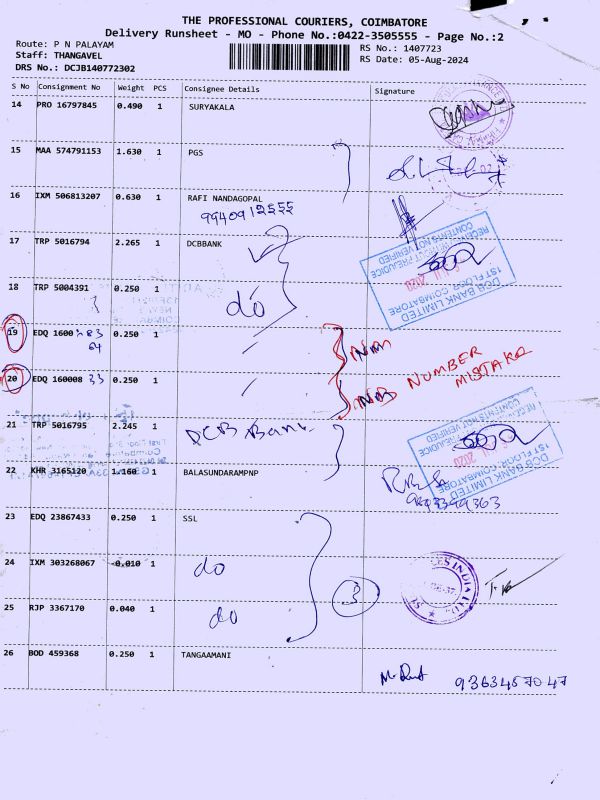 THE PROFESSIONAL COURIERS, COIMBATORE
Delivery Runsheet - MO - Phone No.:0422-3505555 - Page No.:2
Route: P N PALAYAM
RS No.: 1407723
Staff: THANGAVEL
RS Date: 05-Aug-2024
DRS No.: DCJB140772302
S No Consignment No Weight PCS Consignee Details Signature
14 PRO 16797845 0.490 1 SURYAKALA
15 MAA 574791153 1.630 1 PGS
16 IXM 506813207 0.630 1 RAFI NANDAGOPAL
9940912555
17 TRP 5016794 2.265 1 DCBBANK
DCB BANK LIMITED
1ST FLOOR, COIMBATORE
RECEIVED WITHOUT PREJUDICE
CONTENTS NOT VERIFIED
18 TRP 5004391 0.250 1 do
19 EDQ 1600 0.250 1
64
NUMBER MISTAKE
20 EDQ 160008 33 0.250 1
21 TRP 5016795 2.245 1 DCB Bank
DCB BANK LIMITED
1ST FLOOR, COIMBATORE
RECEIVED WITHOUT PREJUDICE
CONTENTS NOT VERIFIED
22 KHR 3165120 1.160 1 BALASUNDARAMPNP
23 EDQ 23867433 0.250 1 SSL
24 IXM 303268067 0.010 1 do
3
25 RJP 3367170 0.040 1 do
26 BOD 459368 0.250 1 TANGAAMANI
9363457047